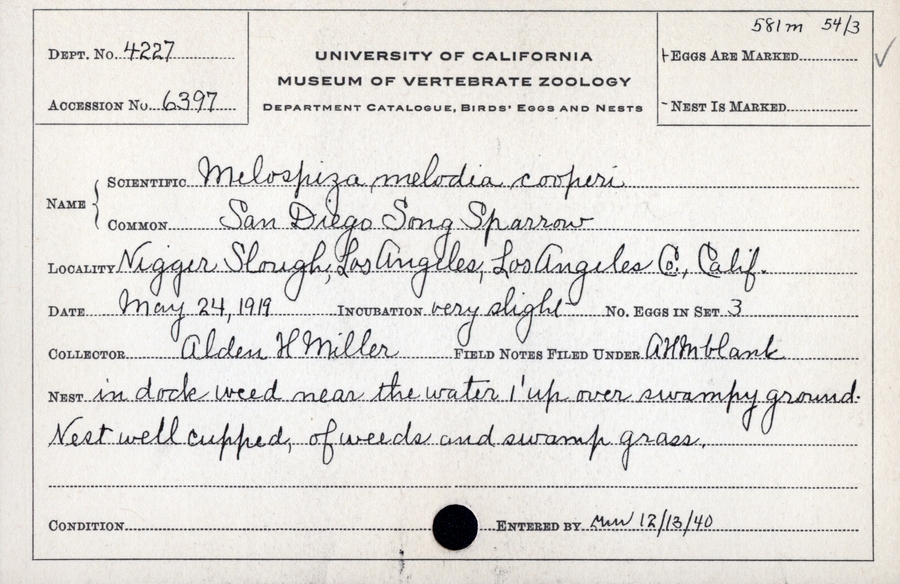 581m 54/3
DEPT. No. 4227
UNIVERSITY OF CALIFORNIA
EGGS ARE MARKED
MUSEUM OF VERTEBRATE ZOOLOGY
ACCESSION No. 6397
DEPARTMENT CATALOGUE, BIRDS' EGGS AND NESTS
NEST IS MARKED
NAME
SCIENTIFIC Melospiza melodia cooperi
COMMON San Diego Song Sparrow
LOCALITY Nigger Slough, Los Angeles, Los Angeles Co., Calif.
DATE May 24, 1919 INCUBATION very slight No. EGGS IN SET 3
COLLECTOR Alden H Miller FIELD NOTES FILED UNDER AHM blank
NEST in dock weed near the water 1' up over swampy ground.
Nest well cupped, of weeds and swamp grass.
CONDITION ENTERED BY 12/13/40